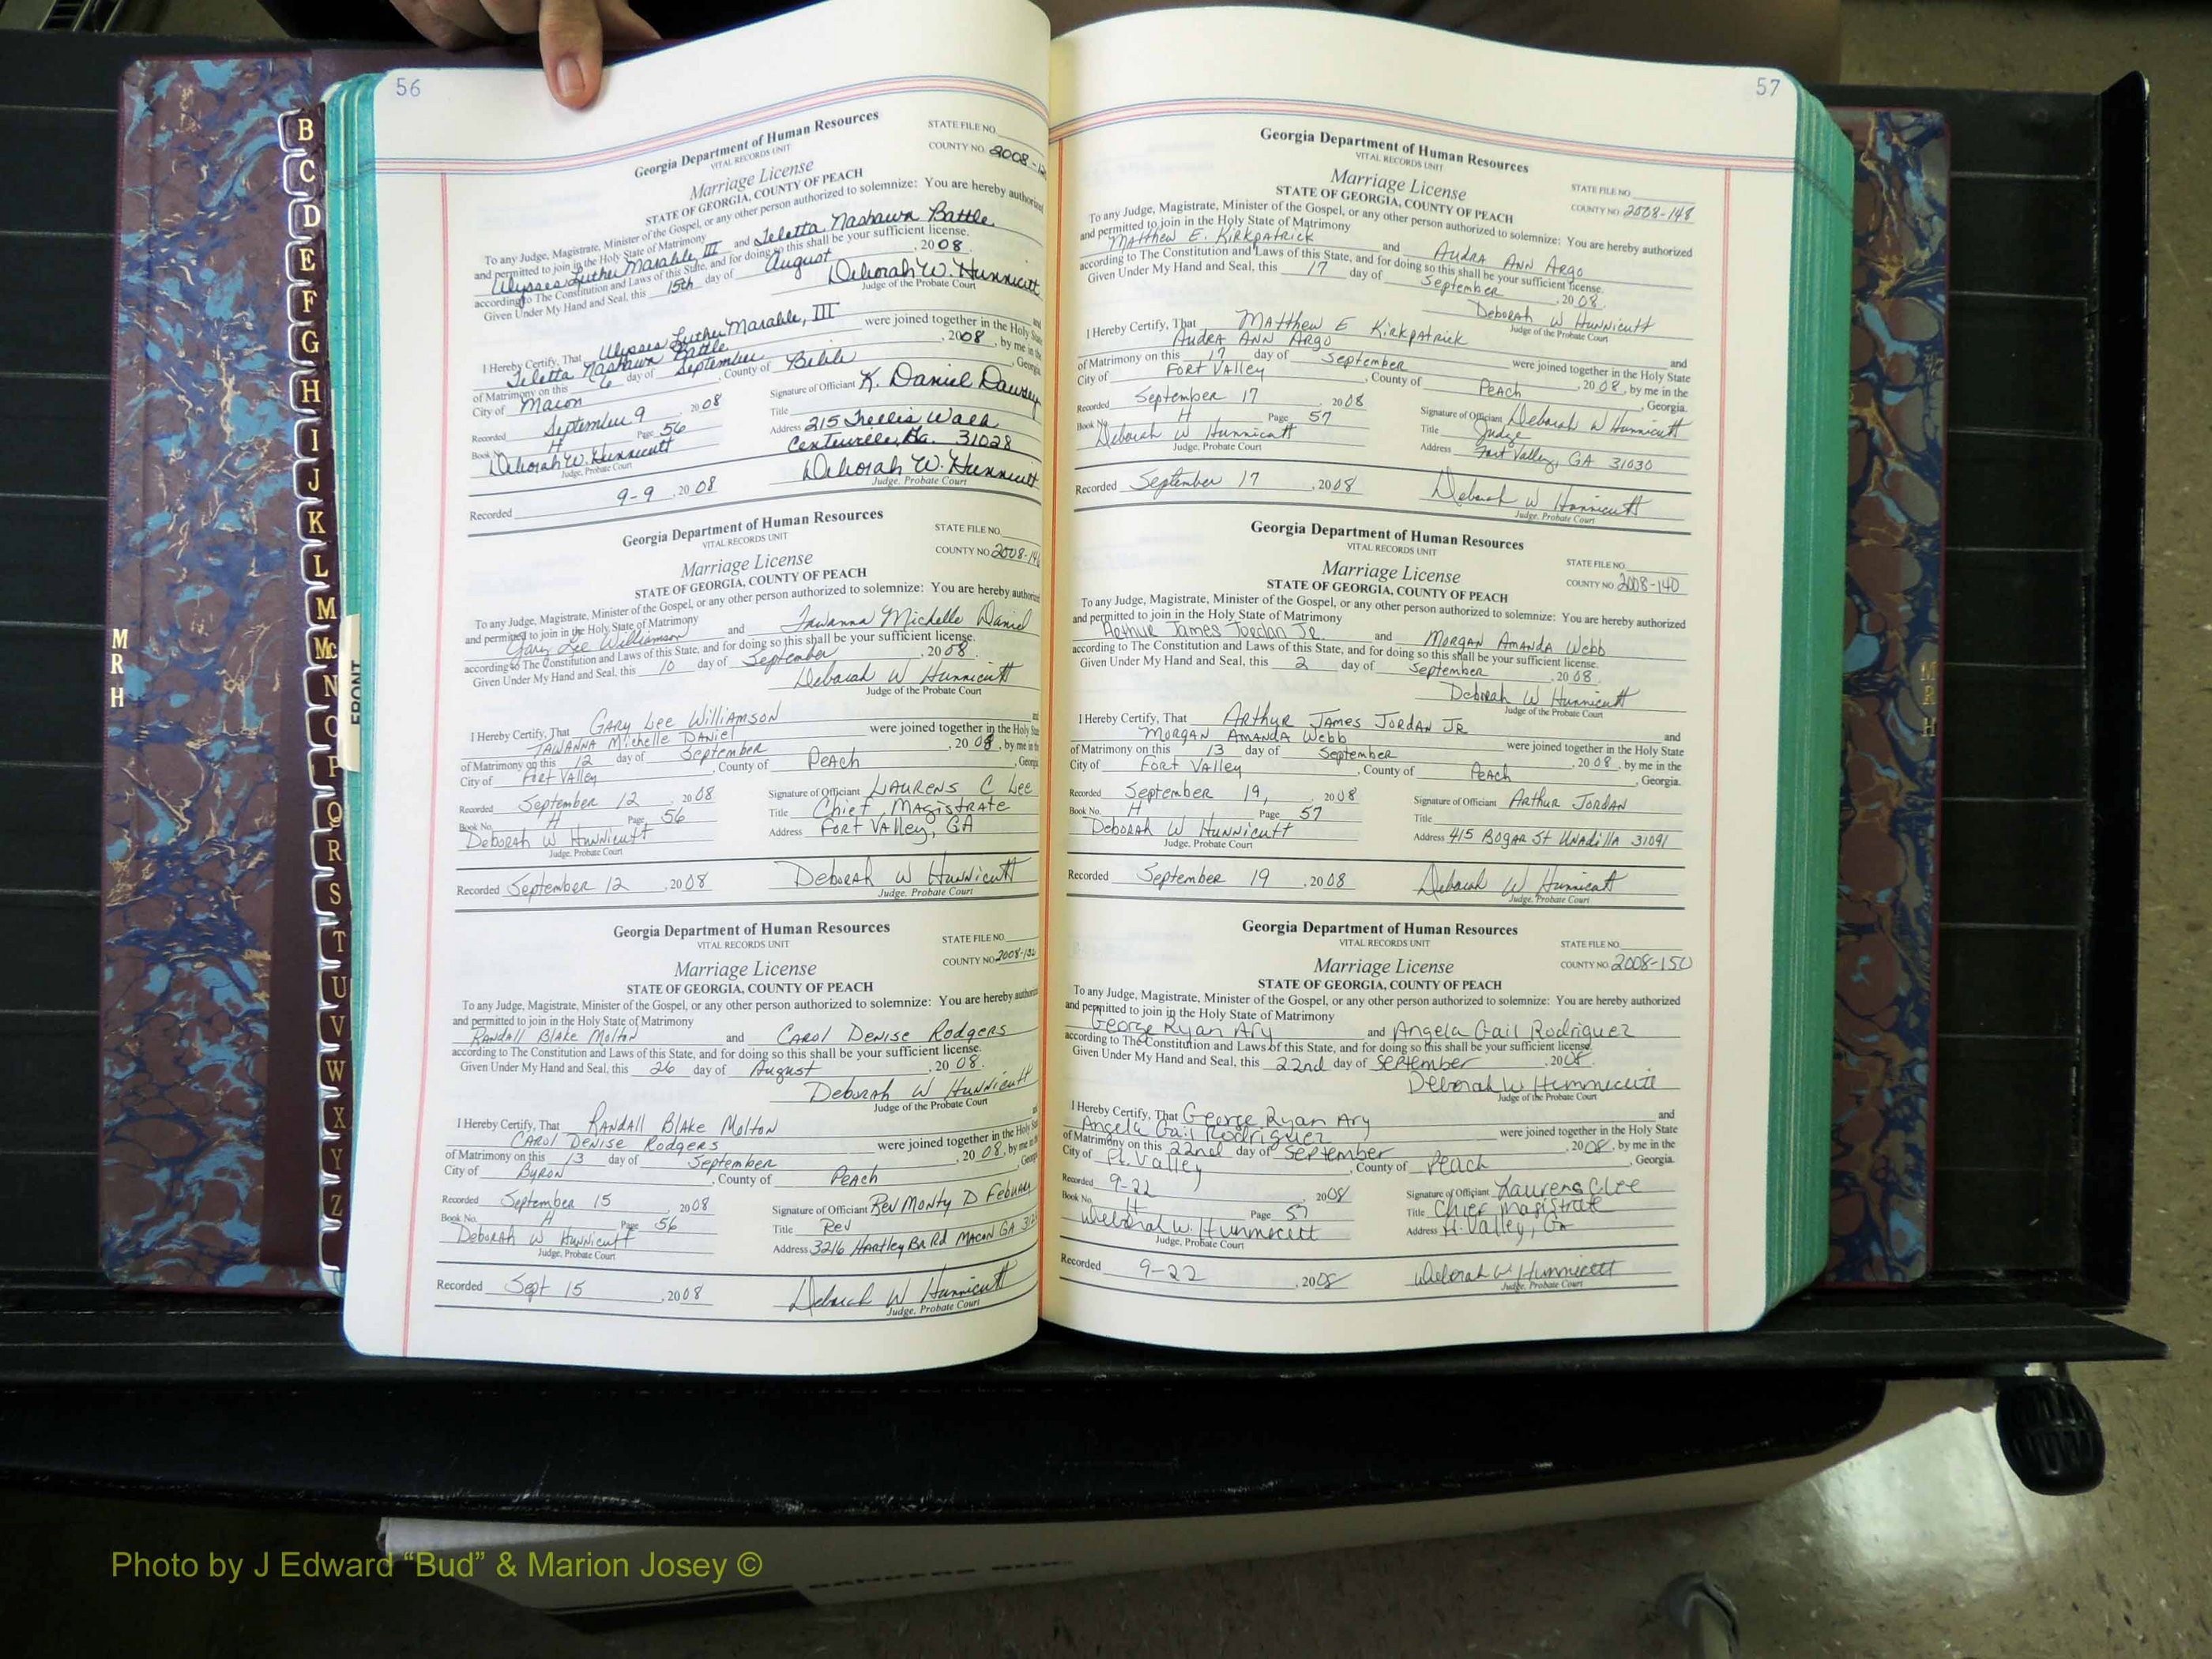 56
Georgia Department of Human Resources
VITAL RECORDS UNIT
STATE FILE NO.
COUNTY NO. 2008-
Marriage License
STATE OF GEORGIA, COUNTY OF PEACH
To any Judge, Magistrate, Minister of the Gospel, or any other person authorized to solemnize: You are hereby authorized
and permitted to join in the Holy State of Matrimony
Ulysses Luther Marable, III and Teletta Nashawn Battle
according to The Constitution and Laws of this State, and for doing so this shall be your sufficient license.
Given Under My Hand and Seal, this 15th day of August, 2008
Deborah W. Hunnicutt
Judge of the Probate Court
I Hereby Certify, That Ulysses Luther Marable, III and
Teletta Nashawn Battle were joined together in the Holy State
of Matrimony on this 6 day of September, 2008, by me in the
City of Macon, County of Bibb, Georgia.
Recorded September 9, 2008
Signature of Officiant K. Daniel Dawsey
Book No. H Page 56
Title
Deborah W. Hunnicutt
Judge, Probate Court
Address 215 Trellis Walk
Centerville, Ga. 31028
Recorded 9-9, 2008
Deborah W. Hunnicutt
Judge, Probate Court
Georgia Department of Human Resources
VITAL RECORDS UNIT
STATE FILE NO.
COUNTY NO. 2008-14
Marriage License
STATE OF GEORGIA, COUNTY OF PEACH
To any Judge, Magistrate, Minister of the Gospel, or any other person authorized to solemnize: You are hereby authorized
and permitted to join in the Holy State of Matrimony
Gary Lee Williamson and Tawanna Michelle Daniel
according to The Constitution and Laws of this State, and for doing so this shall be your sufficient license.
Given Under My Hand and Seal, this 10 day of September, 2008.
Deborah W Hunnicutt
Judge of the Probate Court
I Hereby Certify, That Gary Lee Williamson and
TAWANNA Michelle DANiel were joined together in the Holy State
of Matrimony on this 12 day of September, 2008, by me in the
City of Fort Valley, County of Peach, Georgia
Recorded September 12, 2008
Signature of Officiant LAURENS C Lee
Book No. H Page 56
Title Chief, Magistrate
Deborah W Hunnicutt
Judge, Probate Court
Address Fort Valley, GA
Recorded September 12, 2008
Deborah W Hunnicutt
Judge, Probate Court
Georgia Department of Human Resources
VITAL RECORDS UNIT
STATE FILE NO.
COUNTY NO. 2008-13
Marriage License
STATE OF GEORGIA, COUNTY OF PEACH
To any Judge, Magistrate, Minister of the Gospel, or any other person authorized to solemnize: You are hereby authorized
and permitted to join in the Holy State of Matrimony
Randall Blake Molton and Carol Denise Rodgers
according to The Constitution and Laws of this State, and for doing so this shall be your sufficient license.
Given Under My Hand and Seal, this 26 day of August, 2008.
Deborah W Hunnicutt
Judge of the Probate Court
I Hereby Certify, That Randall Blake Molton and
Carol Denise Rodgers were joined together in the Holy State
of Matrimony on this 13 day of September, 2008, by me in the
City of Byron, County of Peach, Georgia
Recorded September 15, 2008
Signature of Officiant Rev Monty D
Book No. H Page 56
Title Rev
Deborah W Hunnicutt
Judge, Probate Court
Address 3216 Hartley Br Rd Macon GA
Recorded Sept 15, 2008
Deborah W Hunnicutt
Judge, Probate Court
57
Georgia Department of Human Resources
VITAL RECORDS UNIT
Marriage License
STATE FILE NO.
STATE OF GEORGIA, COUNTY OF PEACH
COUNTY NO. 2008-148
To any Judge, Magistrate, Minister of the Gospel, or any other person authorized to solemnize: You are hereby authorized
and permitted to join in the Holy State of Matrimony
Matthew E. Kirkpatrick and Audra Ann Argo
according to The Constitution and Laws of this State, and for doing so this shall be your sufficient license.
Given Under My Hand and Seal, this 17 day of September, 2008.
Deborah W Hunnicutt
Judge of the Probate Court
I Hereby Certify, That Matthew E Kirkpatrick and
Audra Ann Argo were joined together in the Holy State
of Matrimony on this 17 day of September, 2008, by me in the
City of Fort Valley, County of Peach, Georgia.
Recorded September 17, 2008
Signature of Officiant Deborah W Hunnicutt
Book No. H Page 57
Title Judge
Deborah W Hunnicutt
Judge, Probate Court
Address Fort Valley, GA 31030
Recorded September 17, 2008
Deborah W Hunnicutt
Judge, Probate Court
Georgia Department of Human Resources
VITAL RECORDS UNIT
STATE FILE NO.
Marriage License
COUNTY NO. 2008-140
STATE OF GEORGIA, COUNTY OF PEACH
To any Judge, Magistrate, Minister of the Gospel, or any other person authorized to solemnize: You are hereby authorized
and permitted to join in the Holy State of Matrimony
Arthur James Jordan Jr. and Morgan Amanda Webb
according to The Constitution and Laws of this State, and for doing so this shall be your sufficient license.
Given Under My Hand and Seal, this 2 day of September, 2008.
Deborah W Hunnicutt
Judge of the Probate Court
I Hereby Certify, That Arthur James Jordan Jr and
Morgan Amanda Webb were joined together in the Holy State
of Matrimony on this 13 day of September, 2008, by me in the
City of Fort Valley, County of Peach, Georgia.
Recorded September 19, 2008
Signature of Officiant Arthur Jordan
Book No. H Page 57
Title
Deborah W Hunnicutt
Judge, Probate Court
Address 415 Bogar St Unadilla 31091
Recorded September 19, 2008
Deborah W Hunnicutt
Judge, Probate Court
Georgia Department of Human Resources
VITAL RECORDS UNIT
STATE FILE NO.
Marriage License
COUNTY NO. 2008-150
STATE OF GEORGIA, COUNTY OF PEACH
To any Judge, Magistrate, Minister of the Gospel, or any other person authorized to solemnize: You are hereby authorized
and permitted to join in the Holy State of Matrimony
George Ryan Ary and Angela Gail Rodriguez
according to The Constitution and Laws of this State, and for doing so this shall be your sufficient license.
Given Under My Hand and Seal, this 22nd day of September, 2008.
Deborah W Hunnicutt
Judge of the Probate Court
I Hereby Certify, That George Ryan Ary and
Angela Gail Rodriguez were joined together in the Holy State
of Matrimony on this 22nd day of September, 2008, by me in the
City of Ft. Valley, County of Peach, Georgia.
Recorded 9-22, 2008
Signature of Officiant Laurens C Lee
Book No. H Page 57
Title Chief Magistrate
Deborah W. Hunnicutt
Judge, Probate Court
Address Ft. Valley, Ga
Recorded 9-22, 2008
Deborah W Hunnicutt
Judge, Probate Court
B
C
D
E
F
G
H
I
J
K
L
M
Mc
N
O
P
Q
R
S
T
U
V
W
X
Y
Z
FRONT
M
R
H
M
R
H
Photo by J Edward “Bud” & Marion Josey ©